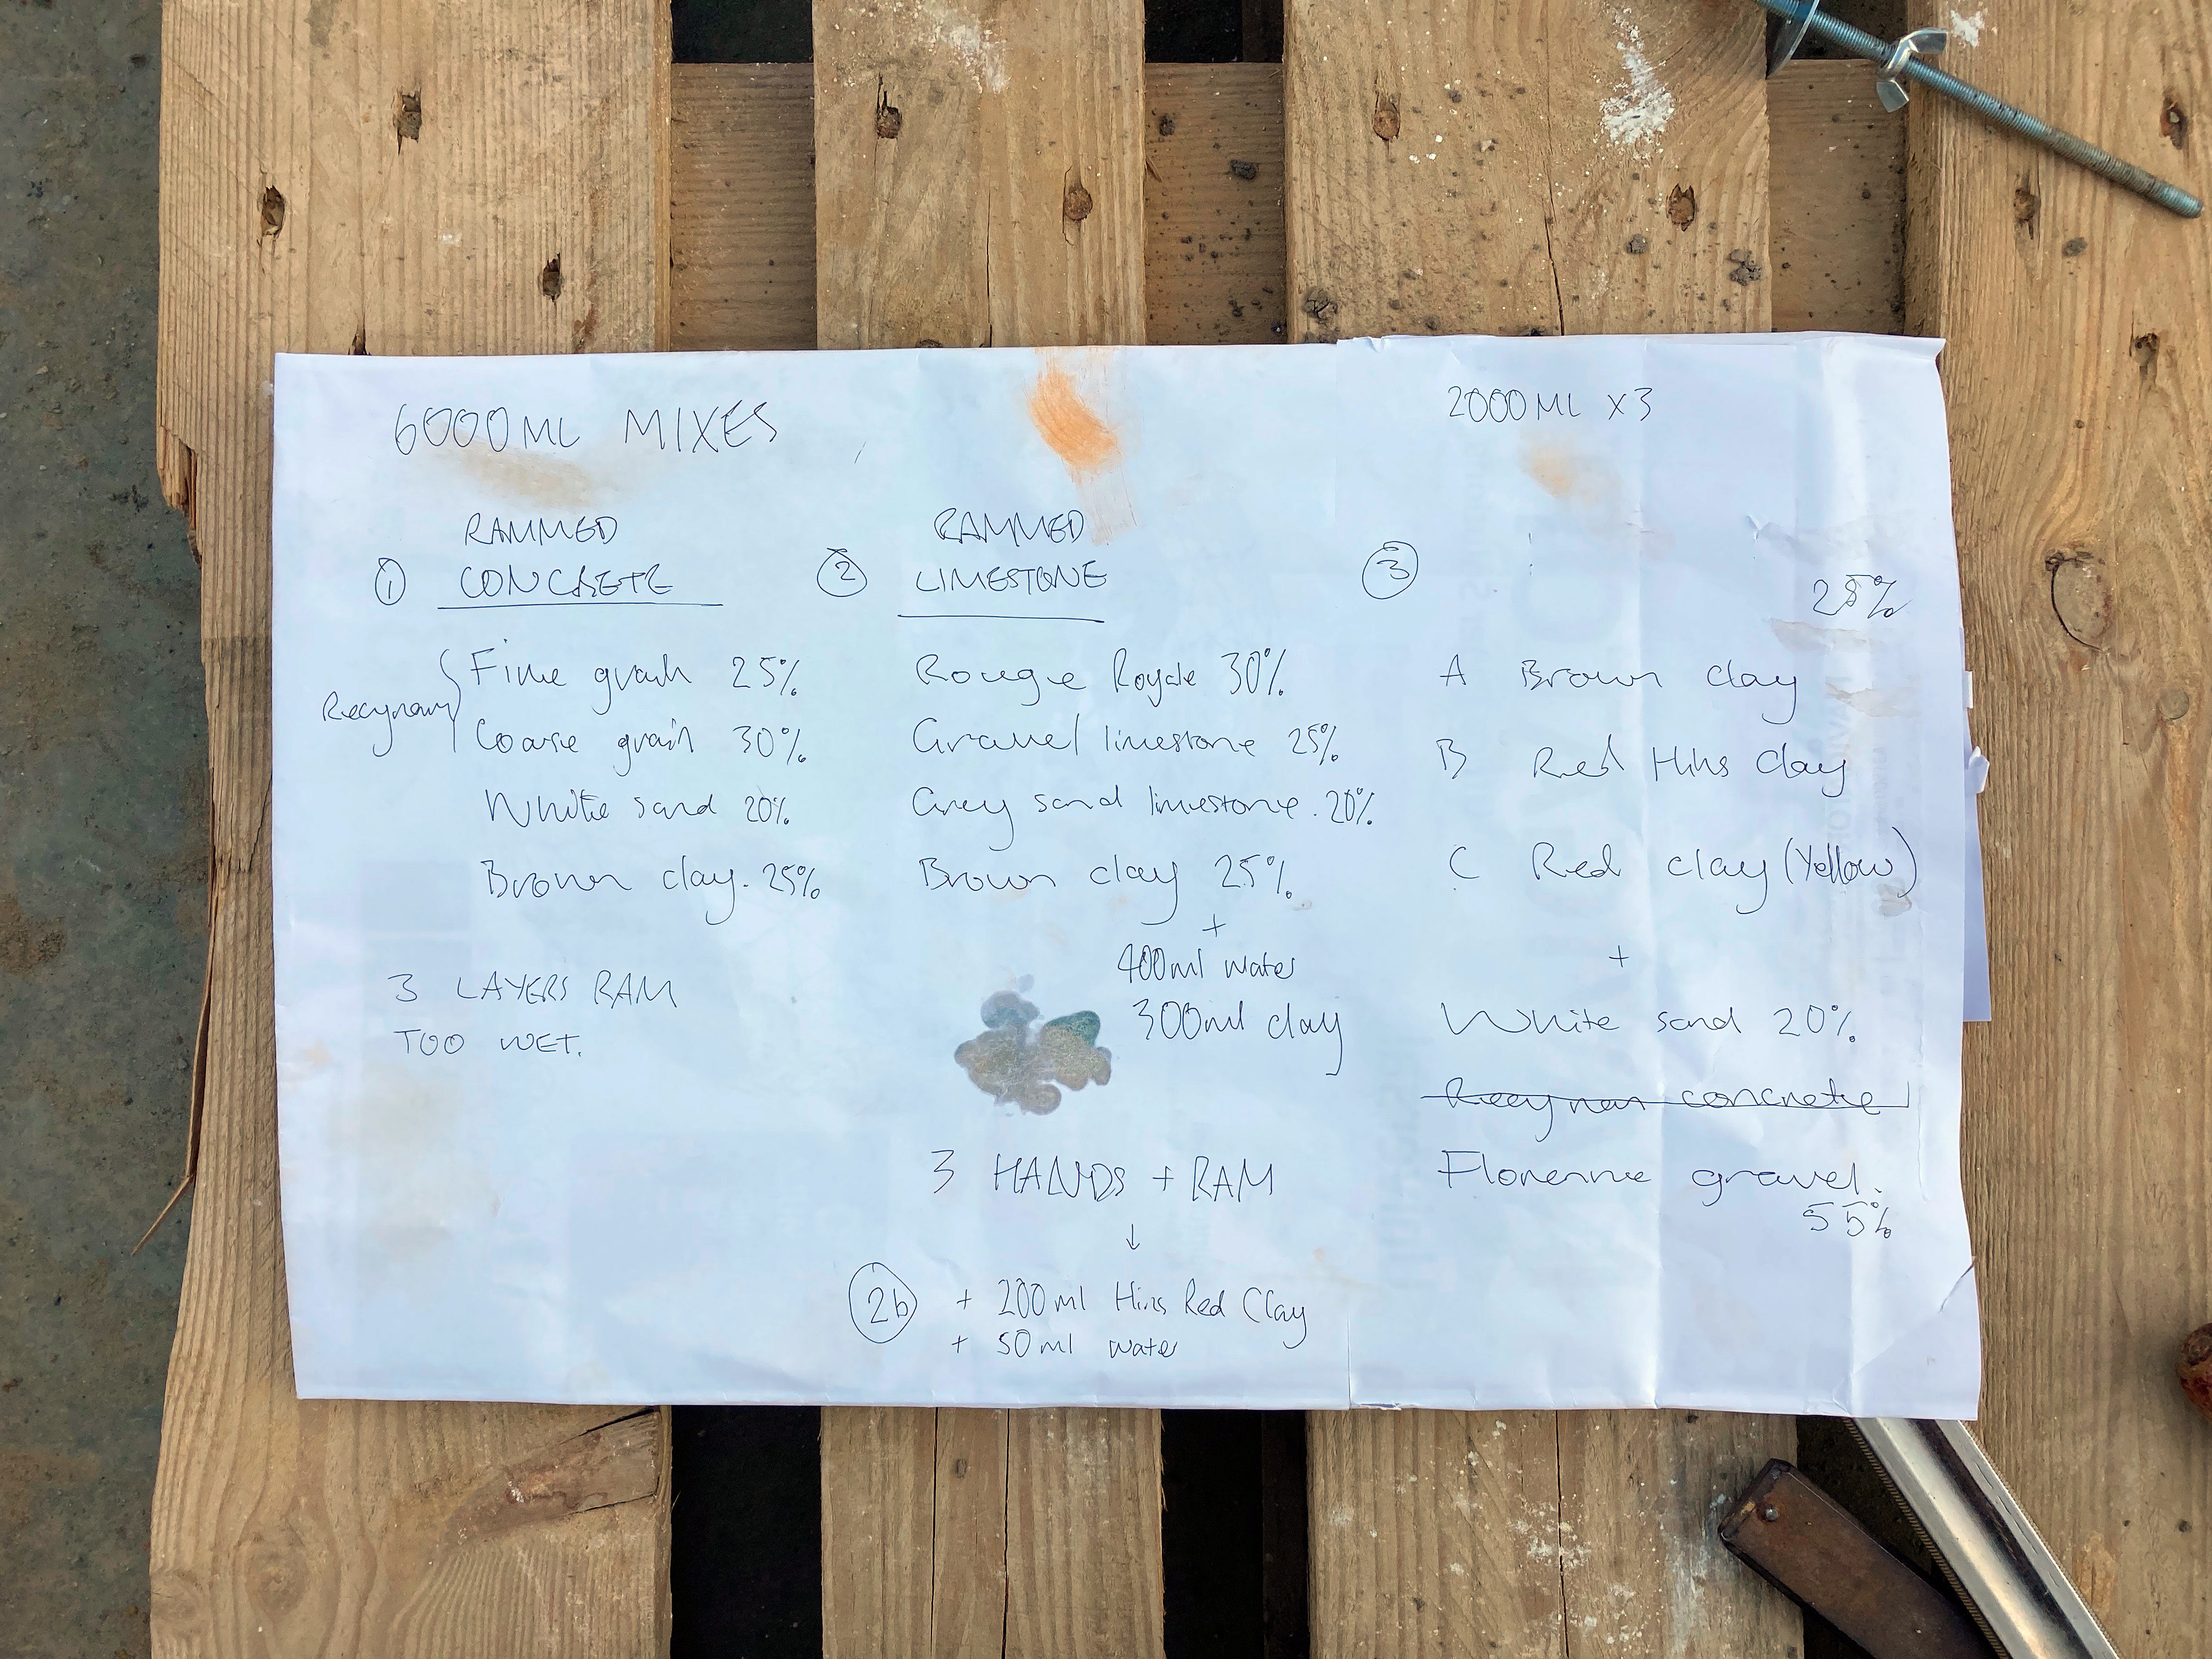 6000ML MIXES
① RAMMED
CONCRETE
Recynam { Fine grain 25%
Coarse grain 30%
White sand 20%
Brown clay. 25%
3 LAYERS RAM
TOO WET.
② RAMMED
LIMESTONE
Rouge Royale 30%
Gravel limestone 25%
Grey sand limestone. 20%
Brown clay 25%
+
400ml water
300ml clay
3 HANDS + RAM
↓
2b + 200ml Hins Red Clay
+ 50ml water
2000ML X3
③
25%
A Brown clay
B Red Hins Clay
C Red clay (Yellow)
+
White sand 20%.
Recynam concrete
Florenne gravel.
55%